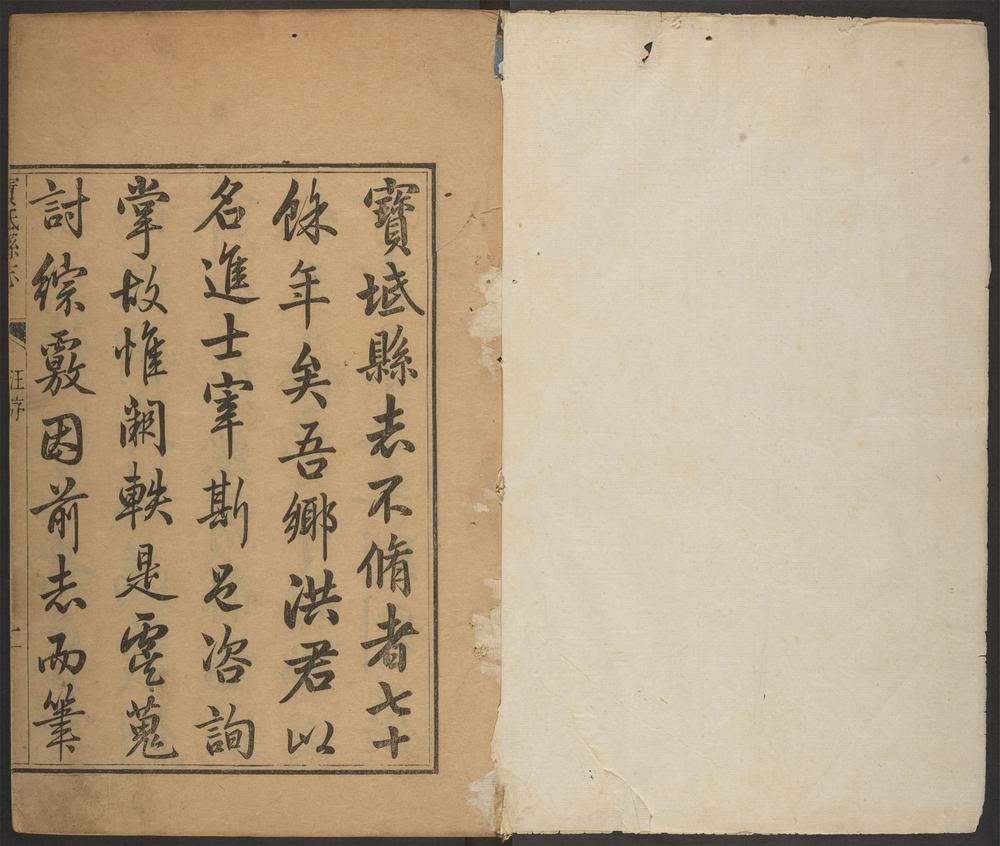 寶坻縣志不脩者七十
餘年矣吾鄉洪君以
名進士宰斯邑咨詢
掌故惟闕軼是虞蒐
討綜覈因前志而筆
寶坻縣志
汪序
一